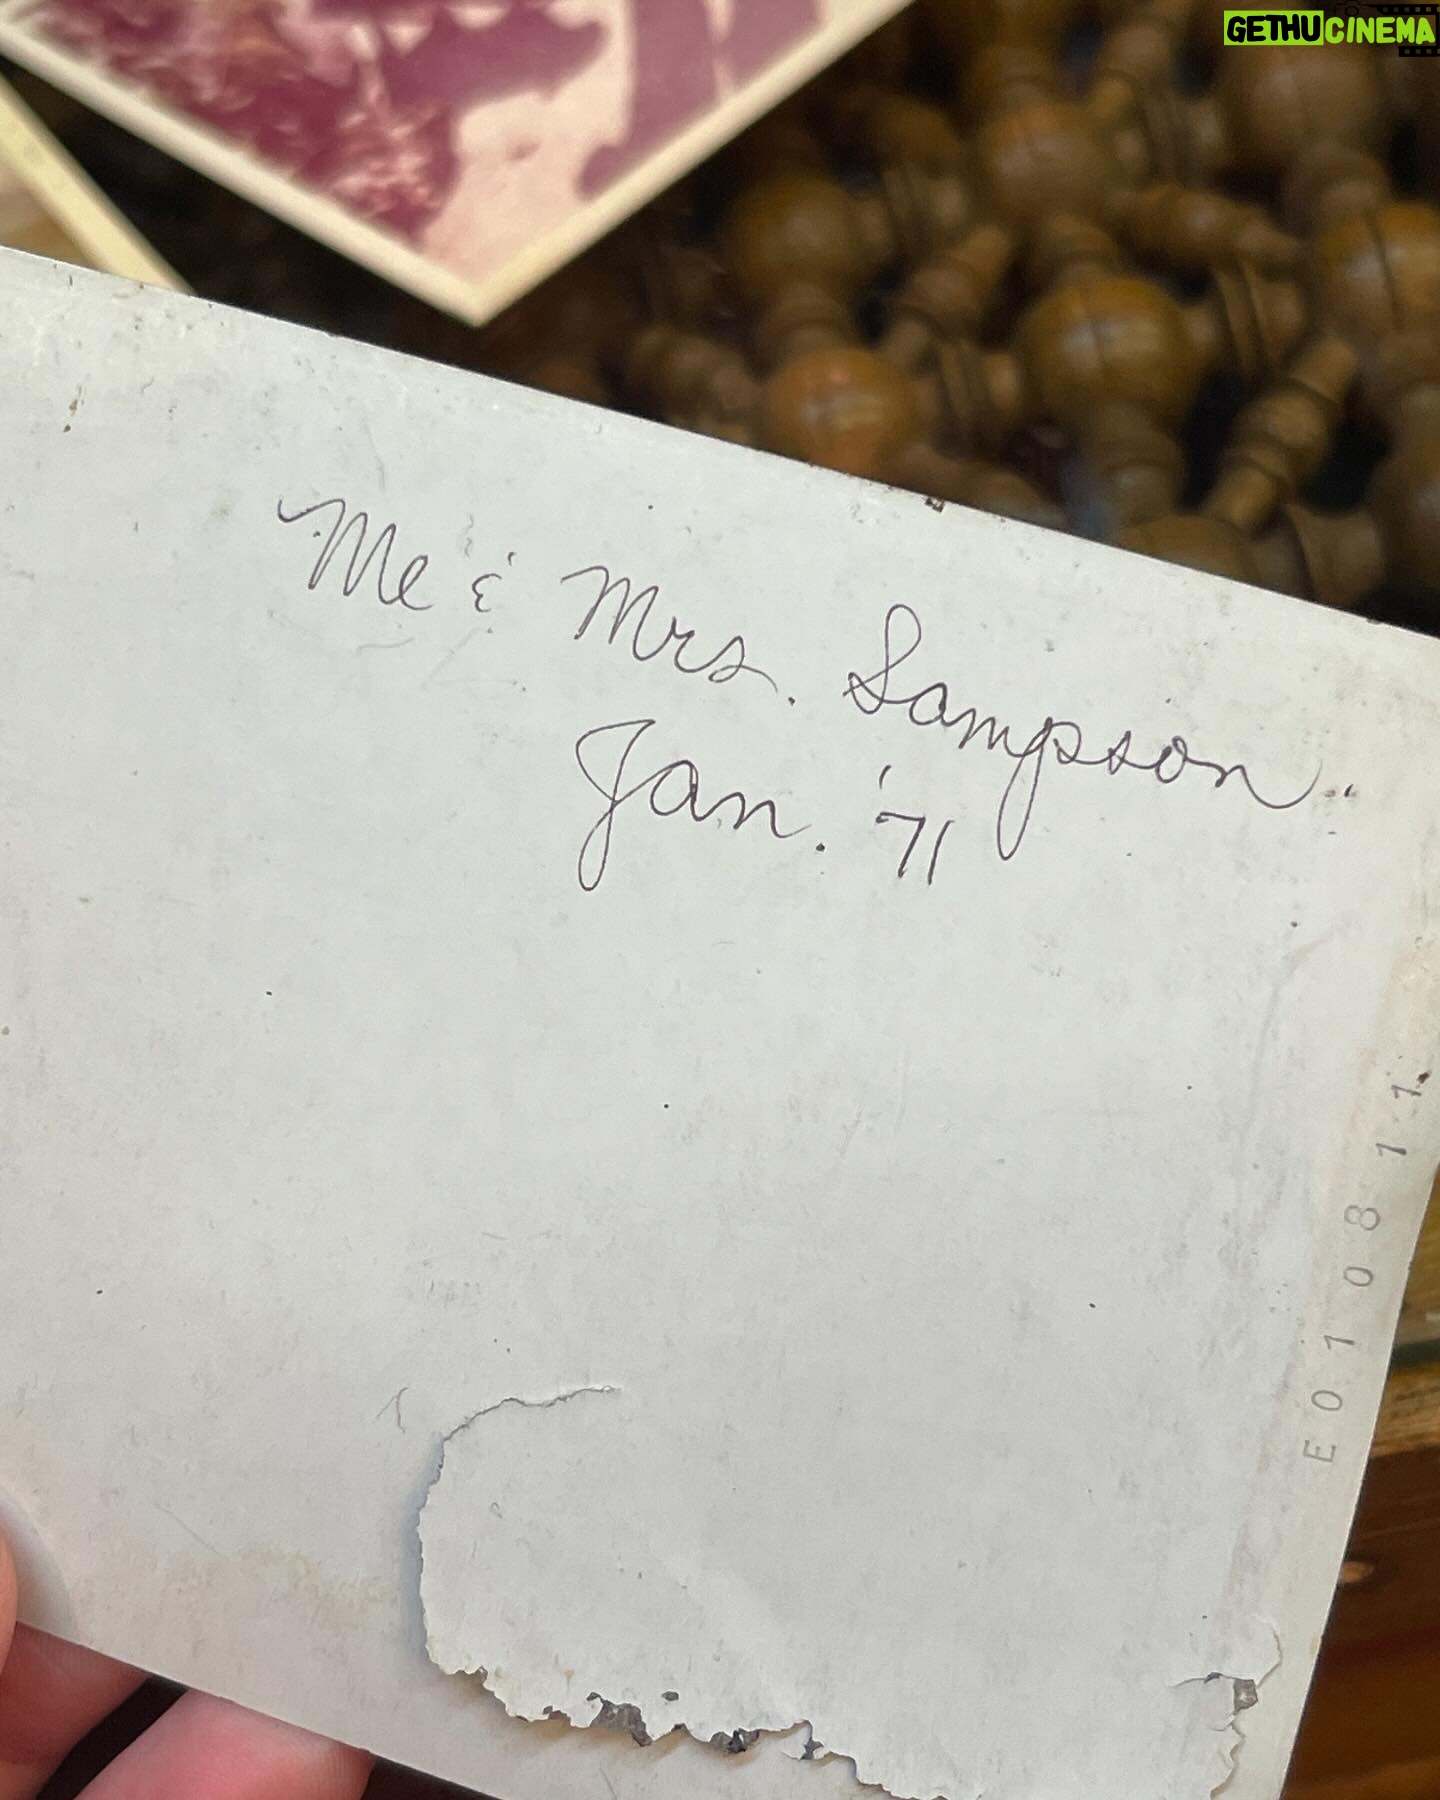 GETHUCINEMA
Me & Mrs. Sampson
Jan. '71
E010811